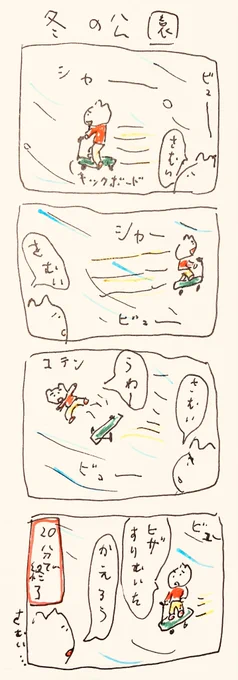 冬の公園
ビュー
シャー
さむい
キックボード
シャー
さむい
ビュー
コテン
うわー
さむい
ビュー
ビュー
ヒザ
すりむいた
かえろう
20分
さむい…